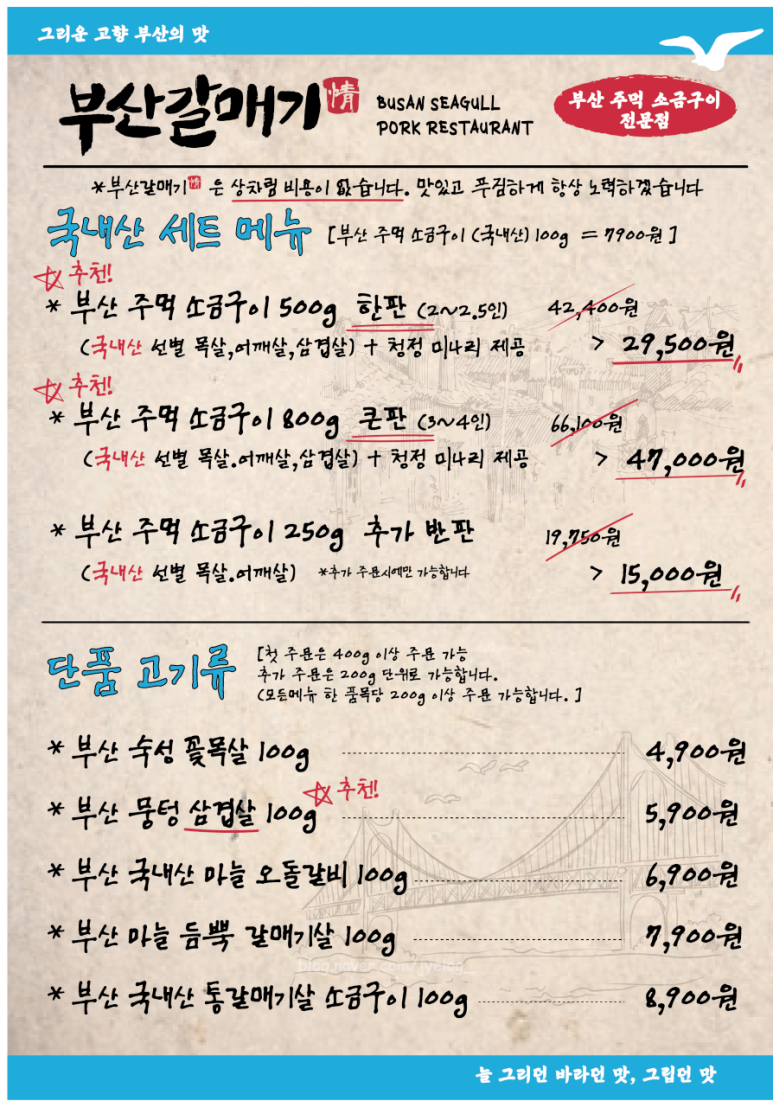 그리운 고향 부산의 맛
부산갈매기 情
BUSAN SEAGULL
PORK RESTAURANT
부산 주먹 소금구이
전문점
*부산갈매기情 은 상차림 비용이 없습니다. 맛있고 푸짐하게 항상 노력하겠습니다
국내산 세트 메뉴 [부산 주먹 소금구이 (국내산) 100g = 7900원 ]
☆ 추천!
* 부산 주먹 소금구이 500g 한판 (2~2.5인) 42,400원
(국내산 선별 목살,어깨살,삼겹살) + 청정 미나리 제공 > 29,500원
☆ 추천!
* 부산 주먹 소금구이 800g 큰판 (3~4인) 66,100원
(국내산 선별 목살.어깨살,삼겹살) + 청정 미나리 제공 > 47,000원
* 부산 주먹 소금구이 250g 추가 반판 19,750원
(국내산 선별 목살.어깨살) *추가 주문시에만 가능합니다 > 15,000원
단품 고기류
[첫 주문은 400g 이상 주문 가능
추가 주문은 200g 단위로 가능합니다.
(모든메뉴 한 품목당 200g 이상 주문 가능합니다. ]
* 부산 숙성 꽃목살 100g 4,900원
☆ 추천!
* 부산 뭉텅 삼겹살 100g 5,900원
* 부산 국내산 마늘 오돌갈비 100g 6,900원
* 부산 마늘 듬뿍 갈매기살 100g 7,900원
* 부산 국내산 통갈매기살 소금구이 100g 8,900원
늘 그리던 바라던 맛, 그립던 맛